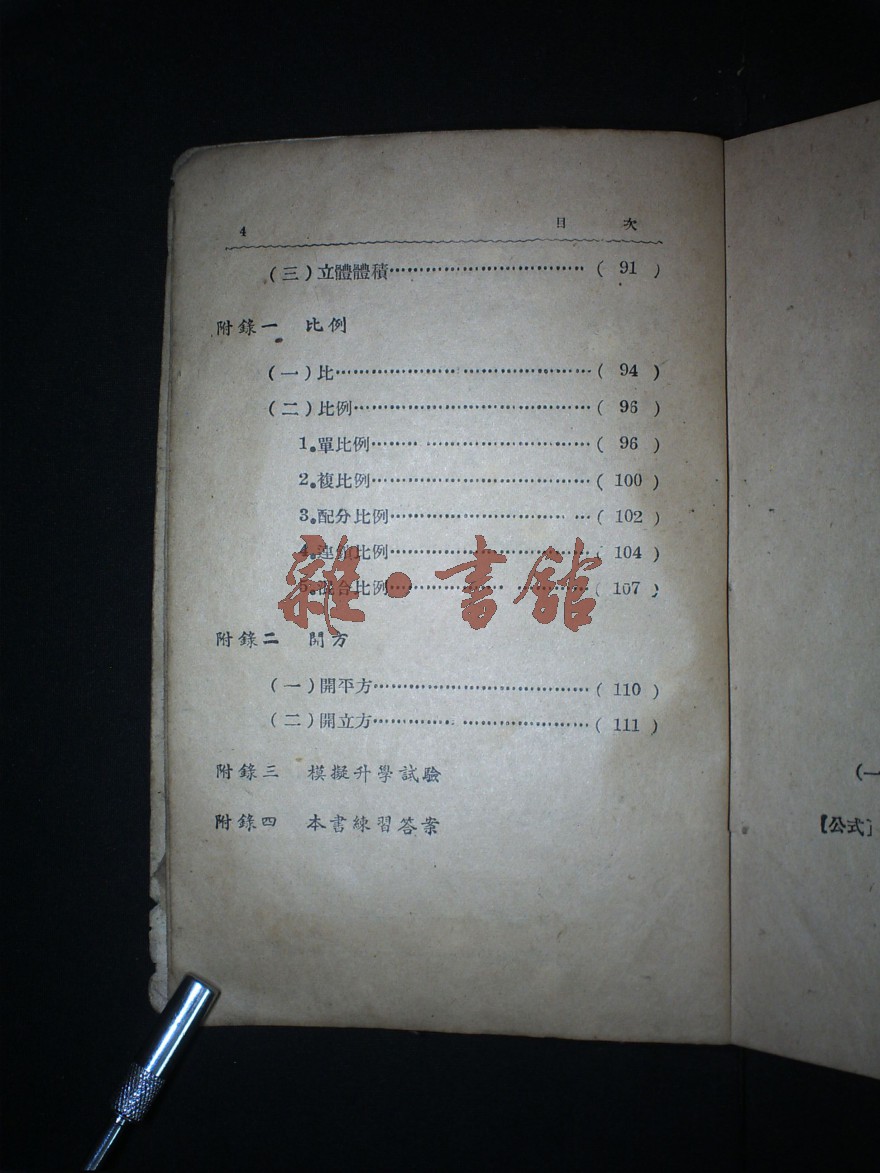 4 目 次
(三)立體體積……………………………( 91 )
附錄一 比例
(一)比……………………………………( 94 )
(二)比例…………………………………( 96 )
1.單比例………………………………( 96 )
2.複比例………………………………( 100 )
3.配分比例……………………………( 102 )
4.連鎖比例……………………………( 104 )
5.混合比例……………………………( 107 )
附錄二 開方
(一)開平方………………………………( 110 )
(二)開立方………………………………( 111 )
附錄三 模擬升學試驗
附錄四 本書練習答案
雜·書館
(一
【公式】